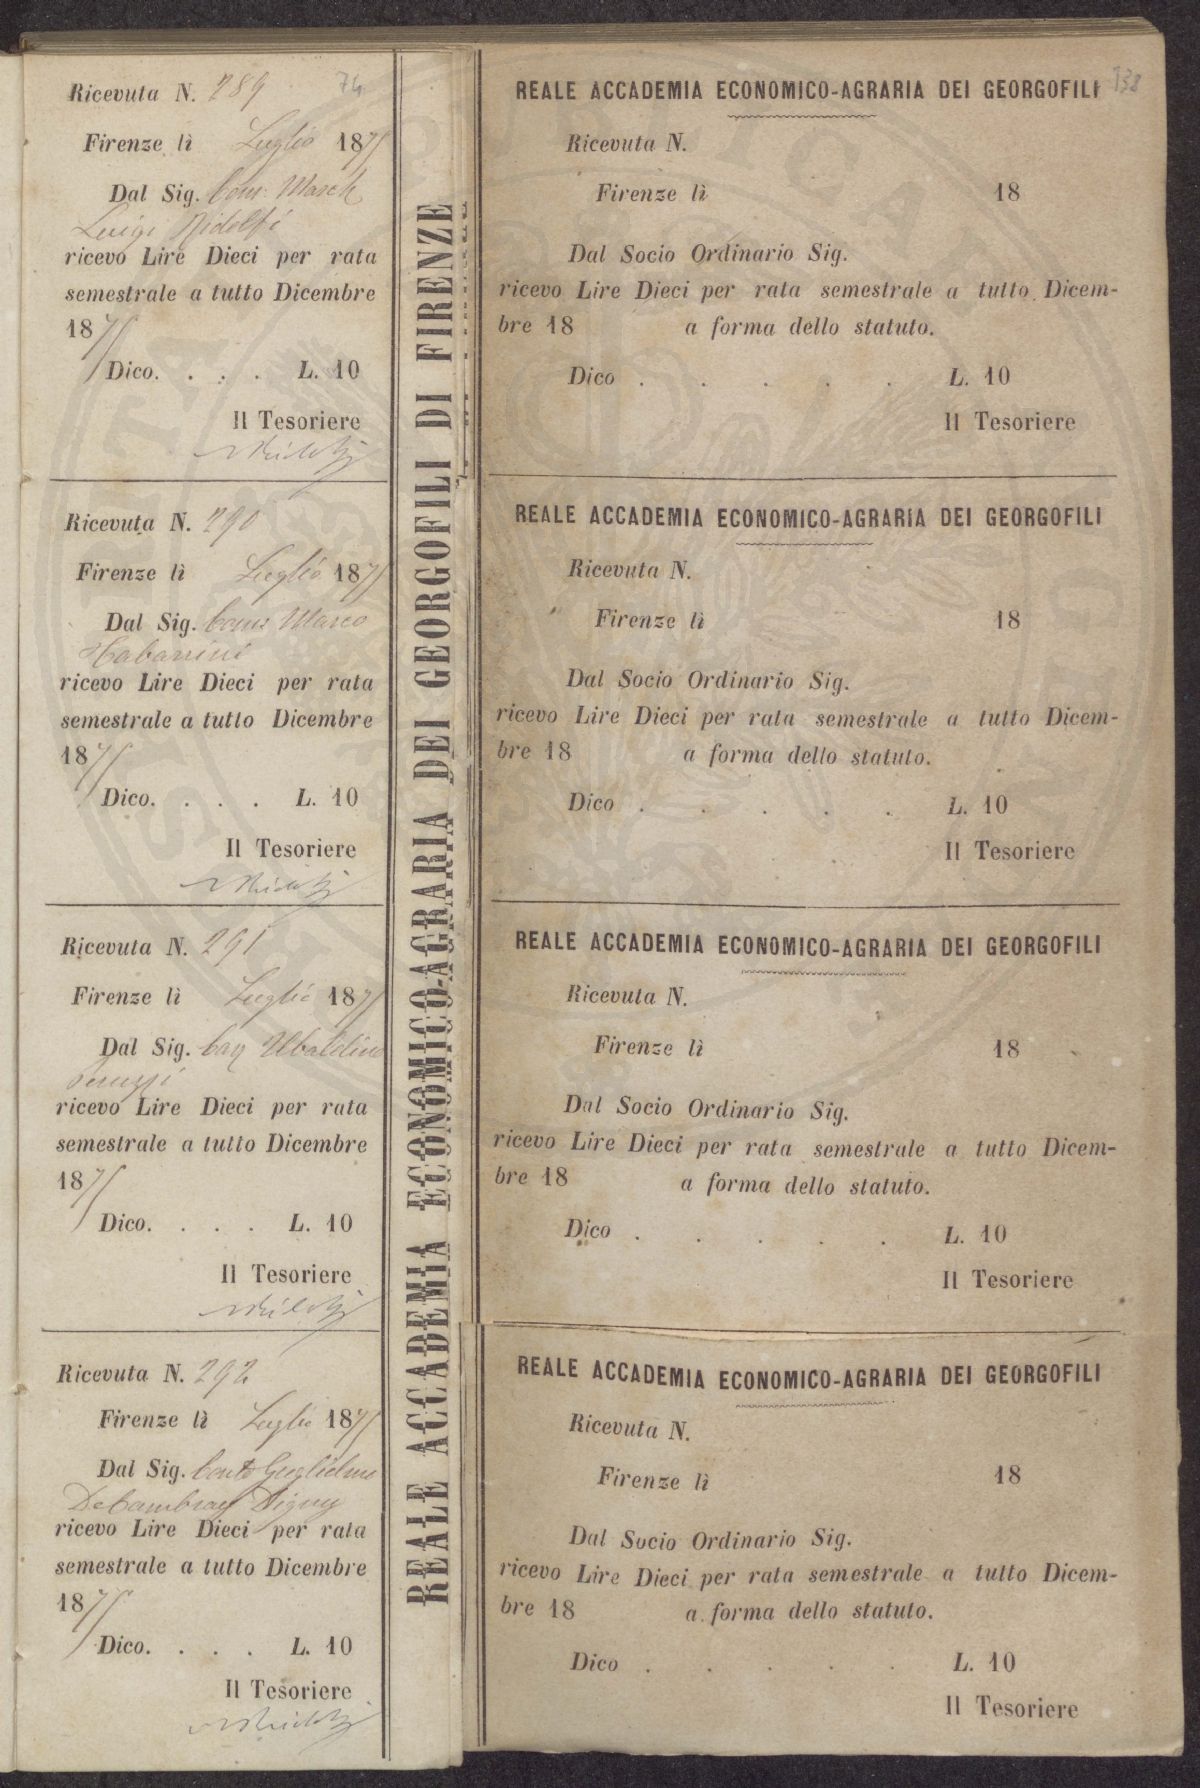 Ricevuta N. 289 74
Firenze lì Luglio 1875
Dal Sig. Com: March
Luigi Ridolfi
ricevo Lire Dieci per rata
semestrale a tutto Dicembre
1875
Dico. . . . L. 10
Il Tesoriere
Ricevuta N. 290
Firenze lì Luglio 1875
Dal Sig. Com: Marco
Tabarrini
ricevo Lire Dieci per rata
semestrale a tutto Dicembre
1875
Dico. . . . L. 10
Il Tesoriere
Ricevuta N. 291
Firenze lì Luglio 1875
Dal Sig. Cav Ubaldino
Peruzzi
ricevo Lire Dieci per rata
semestrale a tutto Dicembre
1875
Dico. . . . L. 10
Il Tesoriere
Ricevuta N. 292
Firenze lì Luglio 1875
Dal Sig. Conte Guglielmo
DeCambray Digny
ricevo Lire Dieci per rata
semestrale a tutto Dicembre
1875
Dico. . . . L. 10
Il Tesoriere
REALE ACCADEMIA ECONOMICO-AGRARIA DEI GEORGOFILI DI FIRENZE
REALE ACCADEMIA ECONOMICO-AGRARIA DEI GEORGOFILI 138
Ricevuta N.
Firenze lì 18
Dal Socio Ordinario Sig.
ricevo Lire Dieci per rata semestrale a tutto Dicem-
bre 18 a forma dello statuto.
Dico . . . . . L. 10
Il Tesoriere
REALE ACCADEMIA ECONOMICO-AGRARIA DEI GEORGOFILI
Ricevuta N.
Firenze lì 18
Dal Socio Ordinario Sig.
ricevo Lire Dieci per rata semestrale a tutto Dicem-
bre 18 a forma dello statuto.
Dico . . . . . L. 10
Il Tesoriere
REALE ACCADEMIA ECONOMICO-AGRARIA DEI GEORGOFILI
Ricevuta N.
Firenze lì 18
Dal Socio Ordinario Sig.
ricevo Lire Dieci per rata semestrale a tutto Dicem-
bre 18 a forma dello statuto.
Dico . . . . . L. 10
Il Tesoriere
REALE ACCADEMIA ECONOMICO-AGRARIA DEI GEORGOFILI
Ricevuta N.
Firenze lì 18
Dal Socio Ordinario Sig.
ricevo Lire Dieci per rata semestrale a tutto Dicem-
bre 18 a forma dello statuto.
Dico . . . . . L. 10
Il Tesoriere